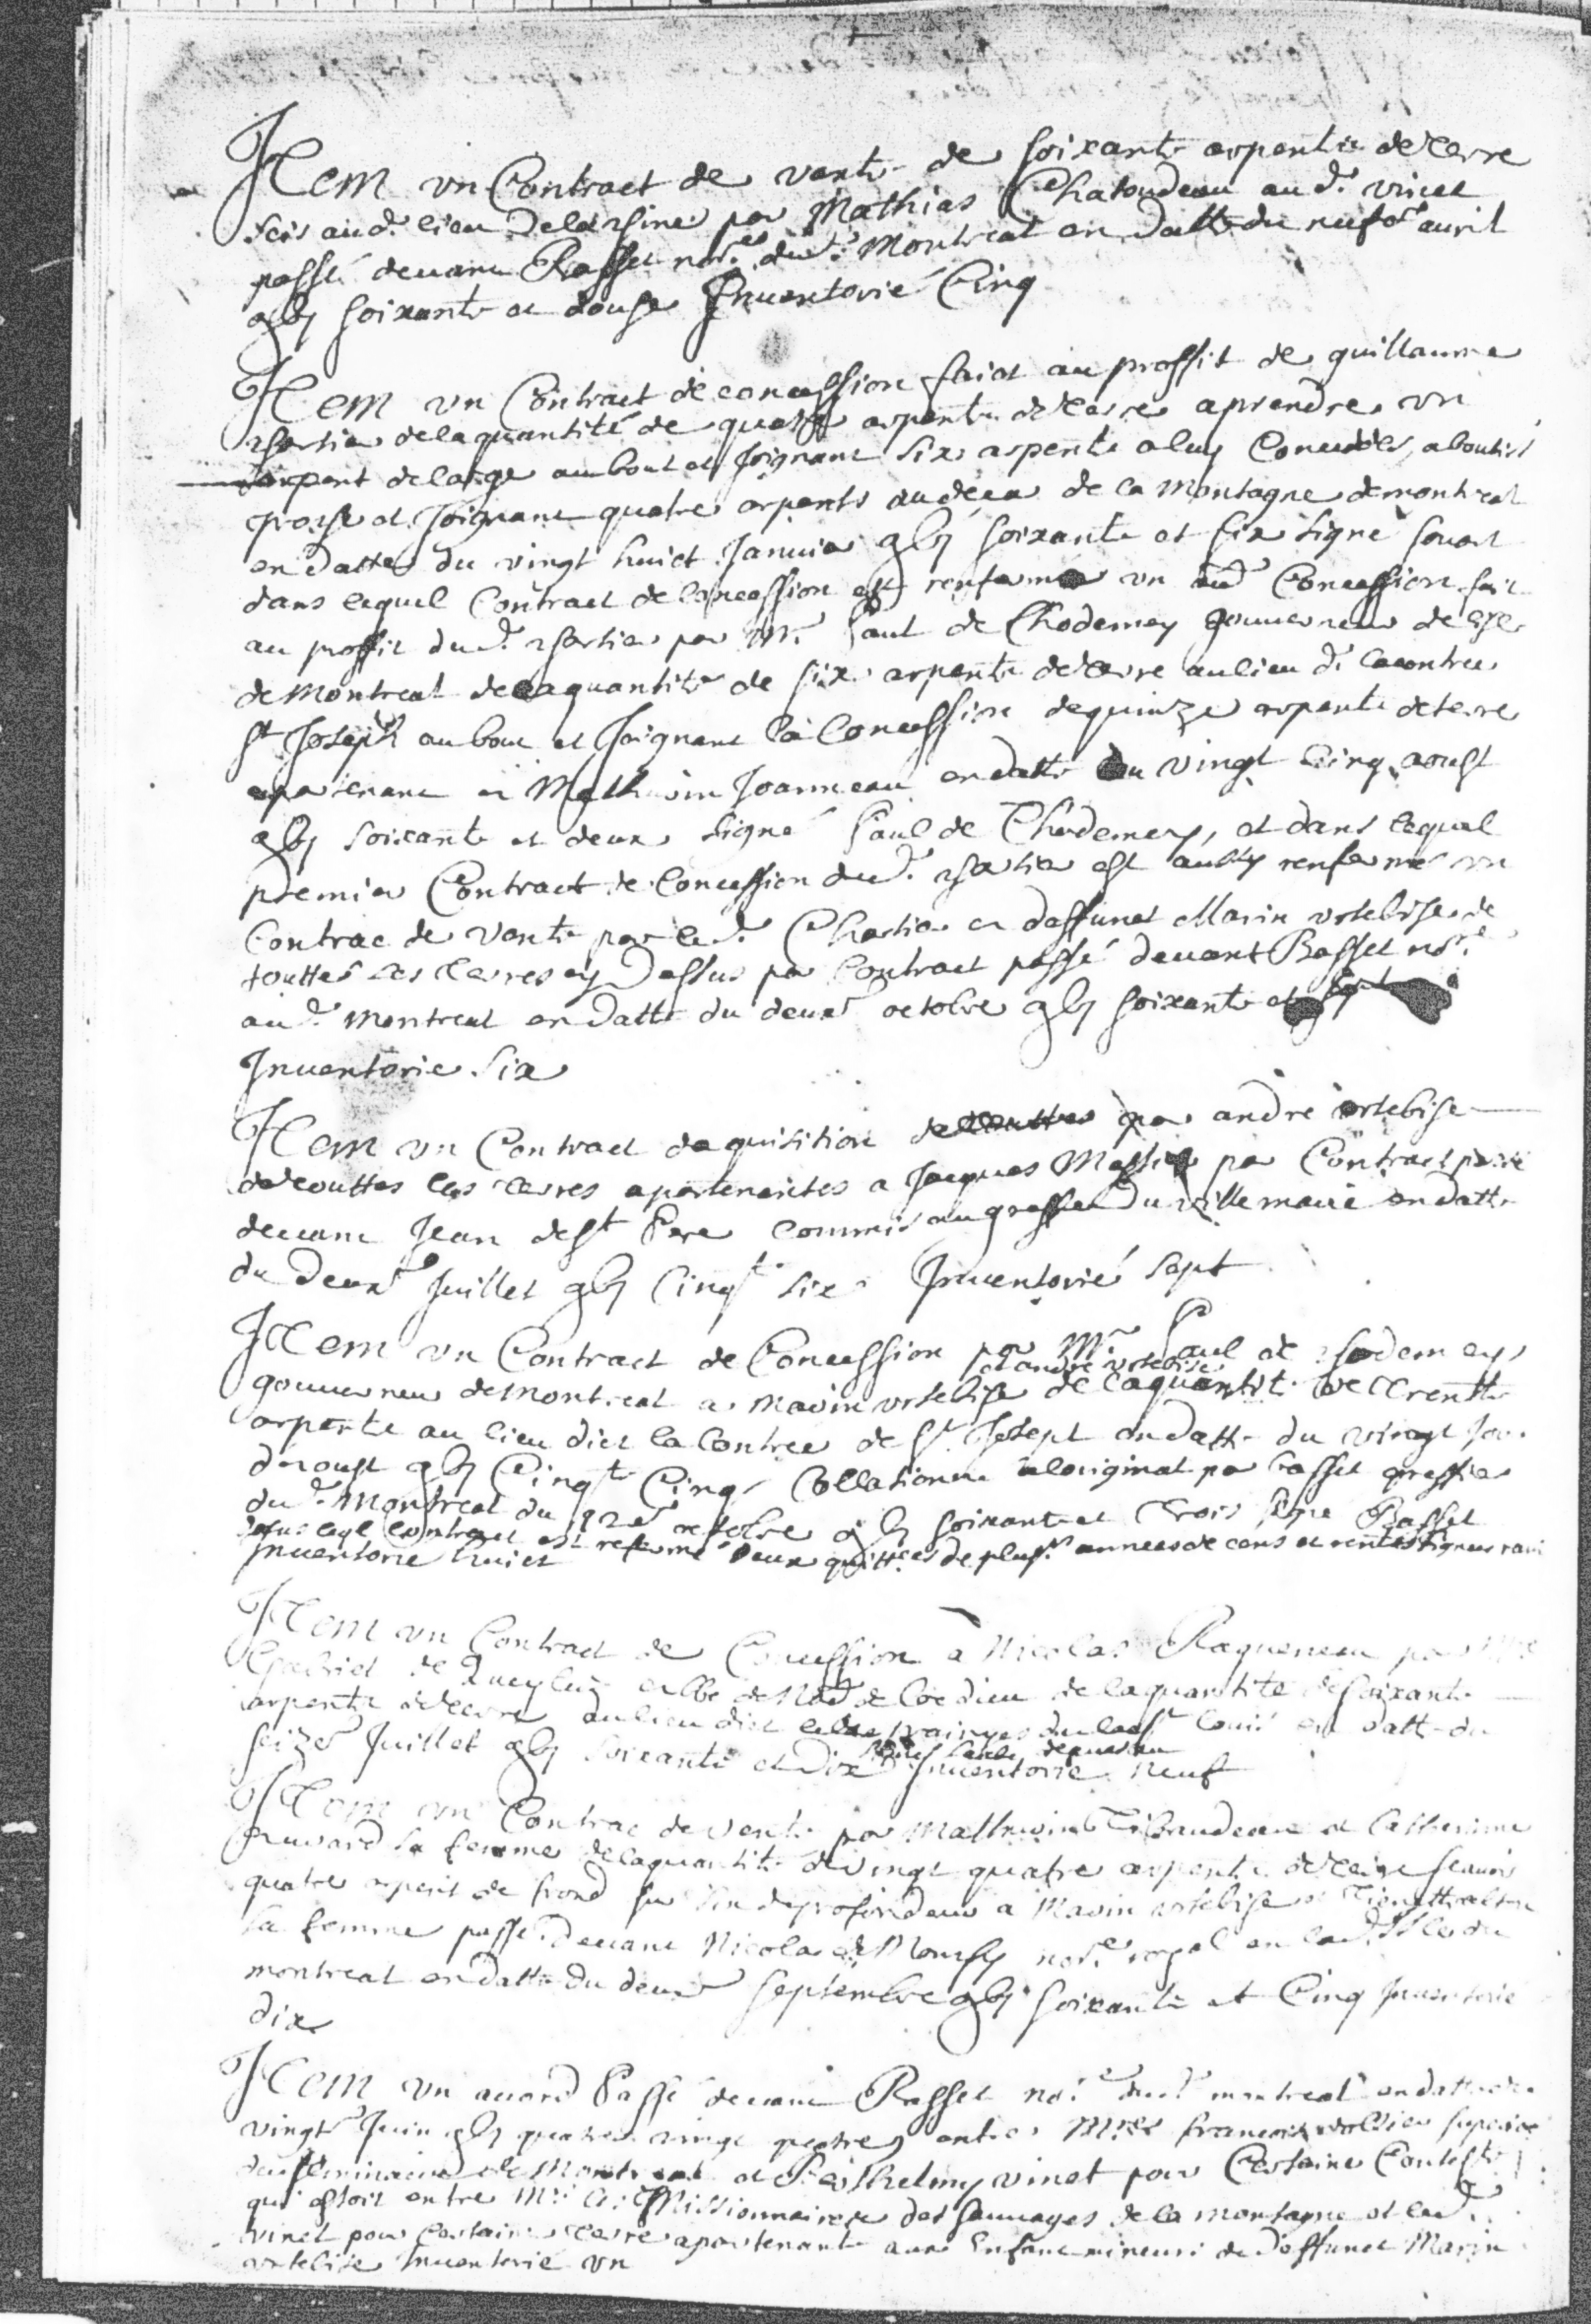 Item un Contract de vante de soixante arpents de terre
scis aud. lieu De la Chine par Mathias Chatoudeau aud. vinet
passé devant Basset nore. dud. Montreal en datte du neufe avril
gbj soixante et douse Inventorié Cinq
Item un Contract de concession faict au proffit de guillaume
Chartier de la quantité de quatre arpents de terre a prendre un
arpent de large au bout et Joignant six arpents a luy Concedées, aboutis
et Joignant quatre arpents au deça de la montagne de montreal
en datte du vingt huict Janvier gbj soixante et six signé Souart
dans lequel Contract de Concession est renfermé un aud Concession fait
au proffit dud. Chartier par Mr. Paul de Chodemey gouverneur de Isle
de Montreal de la quantité de six arpents de terre au lieu d. la contree
St Joseph au bout et Joignant la Concession de quinze arpents de terre
apartenant a Mathurin Joanneau en datte du vingt Cinq aoust
gbj soixante et deux signé Paul de Chodemey, et dans lequel
premier Contract de Concession dud. Chartier est aussy renfermé un
Contrac de vente par led. Chartier a deffunct Marin urtebise de
touttes les terres cy Dessus par Contract passé devant Basset nore.
aud. Montreal en datte du deuxe octobre gbj soixante et sept
Inventorie Six
Item un Contract daquisition par andré urtebise
de touttes les terres apartenantes a Jacques Messier par Contract passé
devant Jean de St Pere Commis au greffe Du villemarie en datte
du Deuxe Juillet gbj Cinqte six Inventorié sept
Item un Contract de Concession par Mr. Paul de Chodemey
et andré urtebise
gouverneur de Montreal a Marin urtebise de la quantité de trentte
arpents au lieu dict la Contree de St. Joseph en datte du vingt
daoust gbj Cinqte Cinq Collationné a loriginal par basset greffier
dud. Montreal du octobre gbj soixante et trois signe Basset
Contract est refermé deux quittces de plusr. annees de cens et rentes signés
Inventorie huict
Item un Contract de Concession a Nicolas Ragueneau par
Gabriel de Queyluz abbe de de la quantité de soixante
arpents de terre au lieu dict du lac St Louis en datte du
seize Juillet gbj soixante et dix Inventorie neuf
Item un Contrac de vente par Mathurin Tibaudeau et Catherine
Auvard sa femme de la quantité de vingt quatre arpents de terre
quatre arpent de frond sur six de profondeur a Marin urtebise et
sa femme passé devant Nicolas de Mouchy nore. royal en lad. Isle du
montreal en datte du deuxe septembre gbj soixante et Cinq Inventorié
dix
Item un acord Passé devant Basset no. dud montreal en datte du
vingte Juin gbj quatre vingt quatre entre Mre francois dollier superieur
du seminaire de Montreal et Barthelmy vinet pour Certaine Conteste
qui estoit entre Mr. Missionnaire des sauvages de la montagne et led.
vinet pour Certaine terre apartenante aux Enfans mineurs de deffunct Marin
urtebise Inventorié un